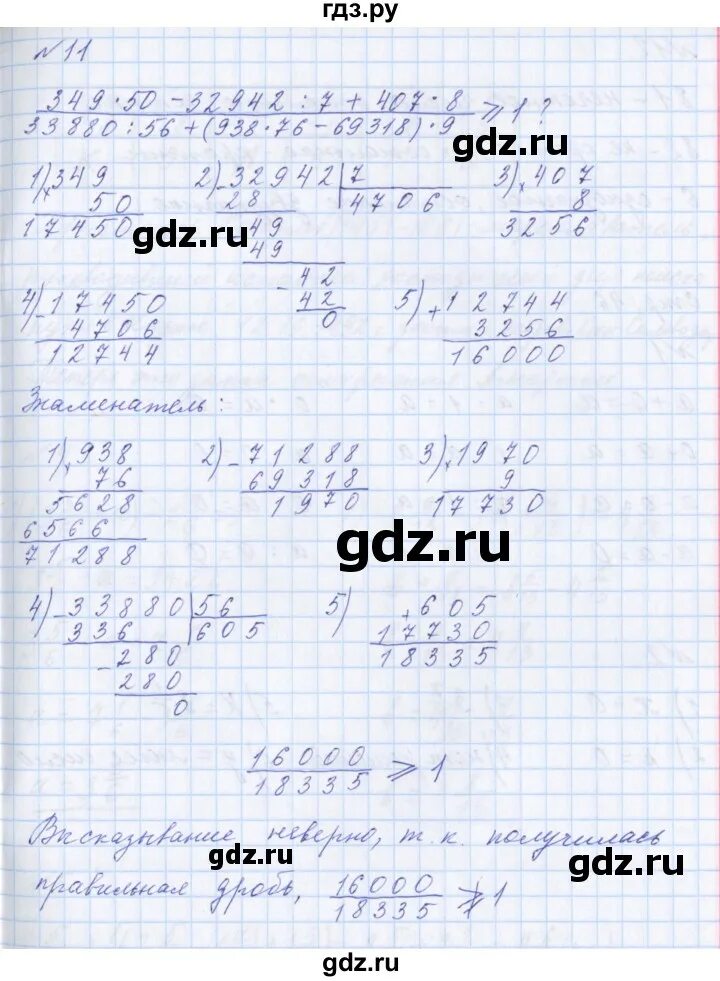 гдз.ру
№11
349·50-32942:7+407·8
33880:56+(938·76-69318)·9 ⩾ 1?
gdz.ru
1) × 349
50
17450
2) - 32942 | 7
28 4706
49
49
- 42
42
0
3) × 407
8
3256
gdz.ru
4) - 17450
4706
12744
5) + 12744
3256
16000
Знаменатель:
1) × 938
76
5628
6566
71288
2) - 71288
69318
1970
3) × 1970
9
17730
gdz.ru
4) - 33880 | 56
336 605
- 280
280
0
5) + 605
17730
18335
16000
18335 ⩾ 1
Высказывание неверно, т.к. получилась
gdz.ru
gdz.ru
правильная дробь, 16000
18335 ⩾̸ 1
gdz.ru